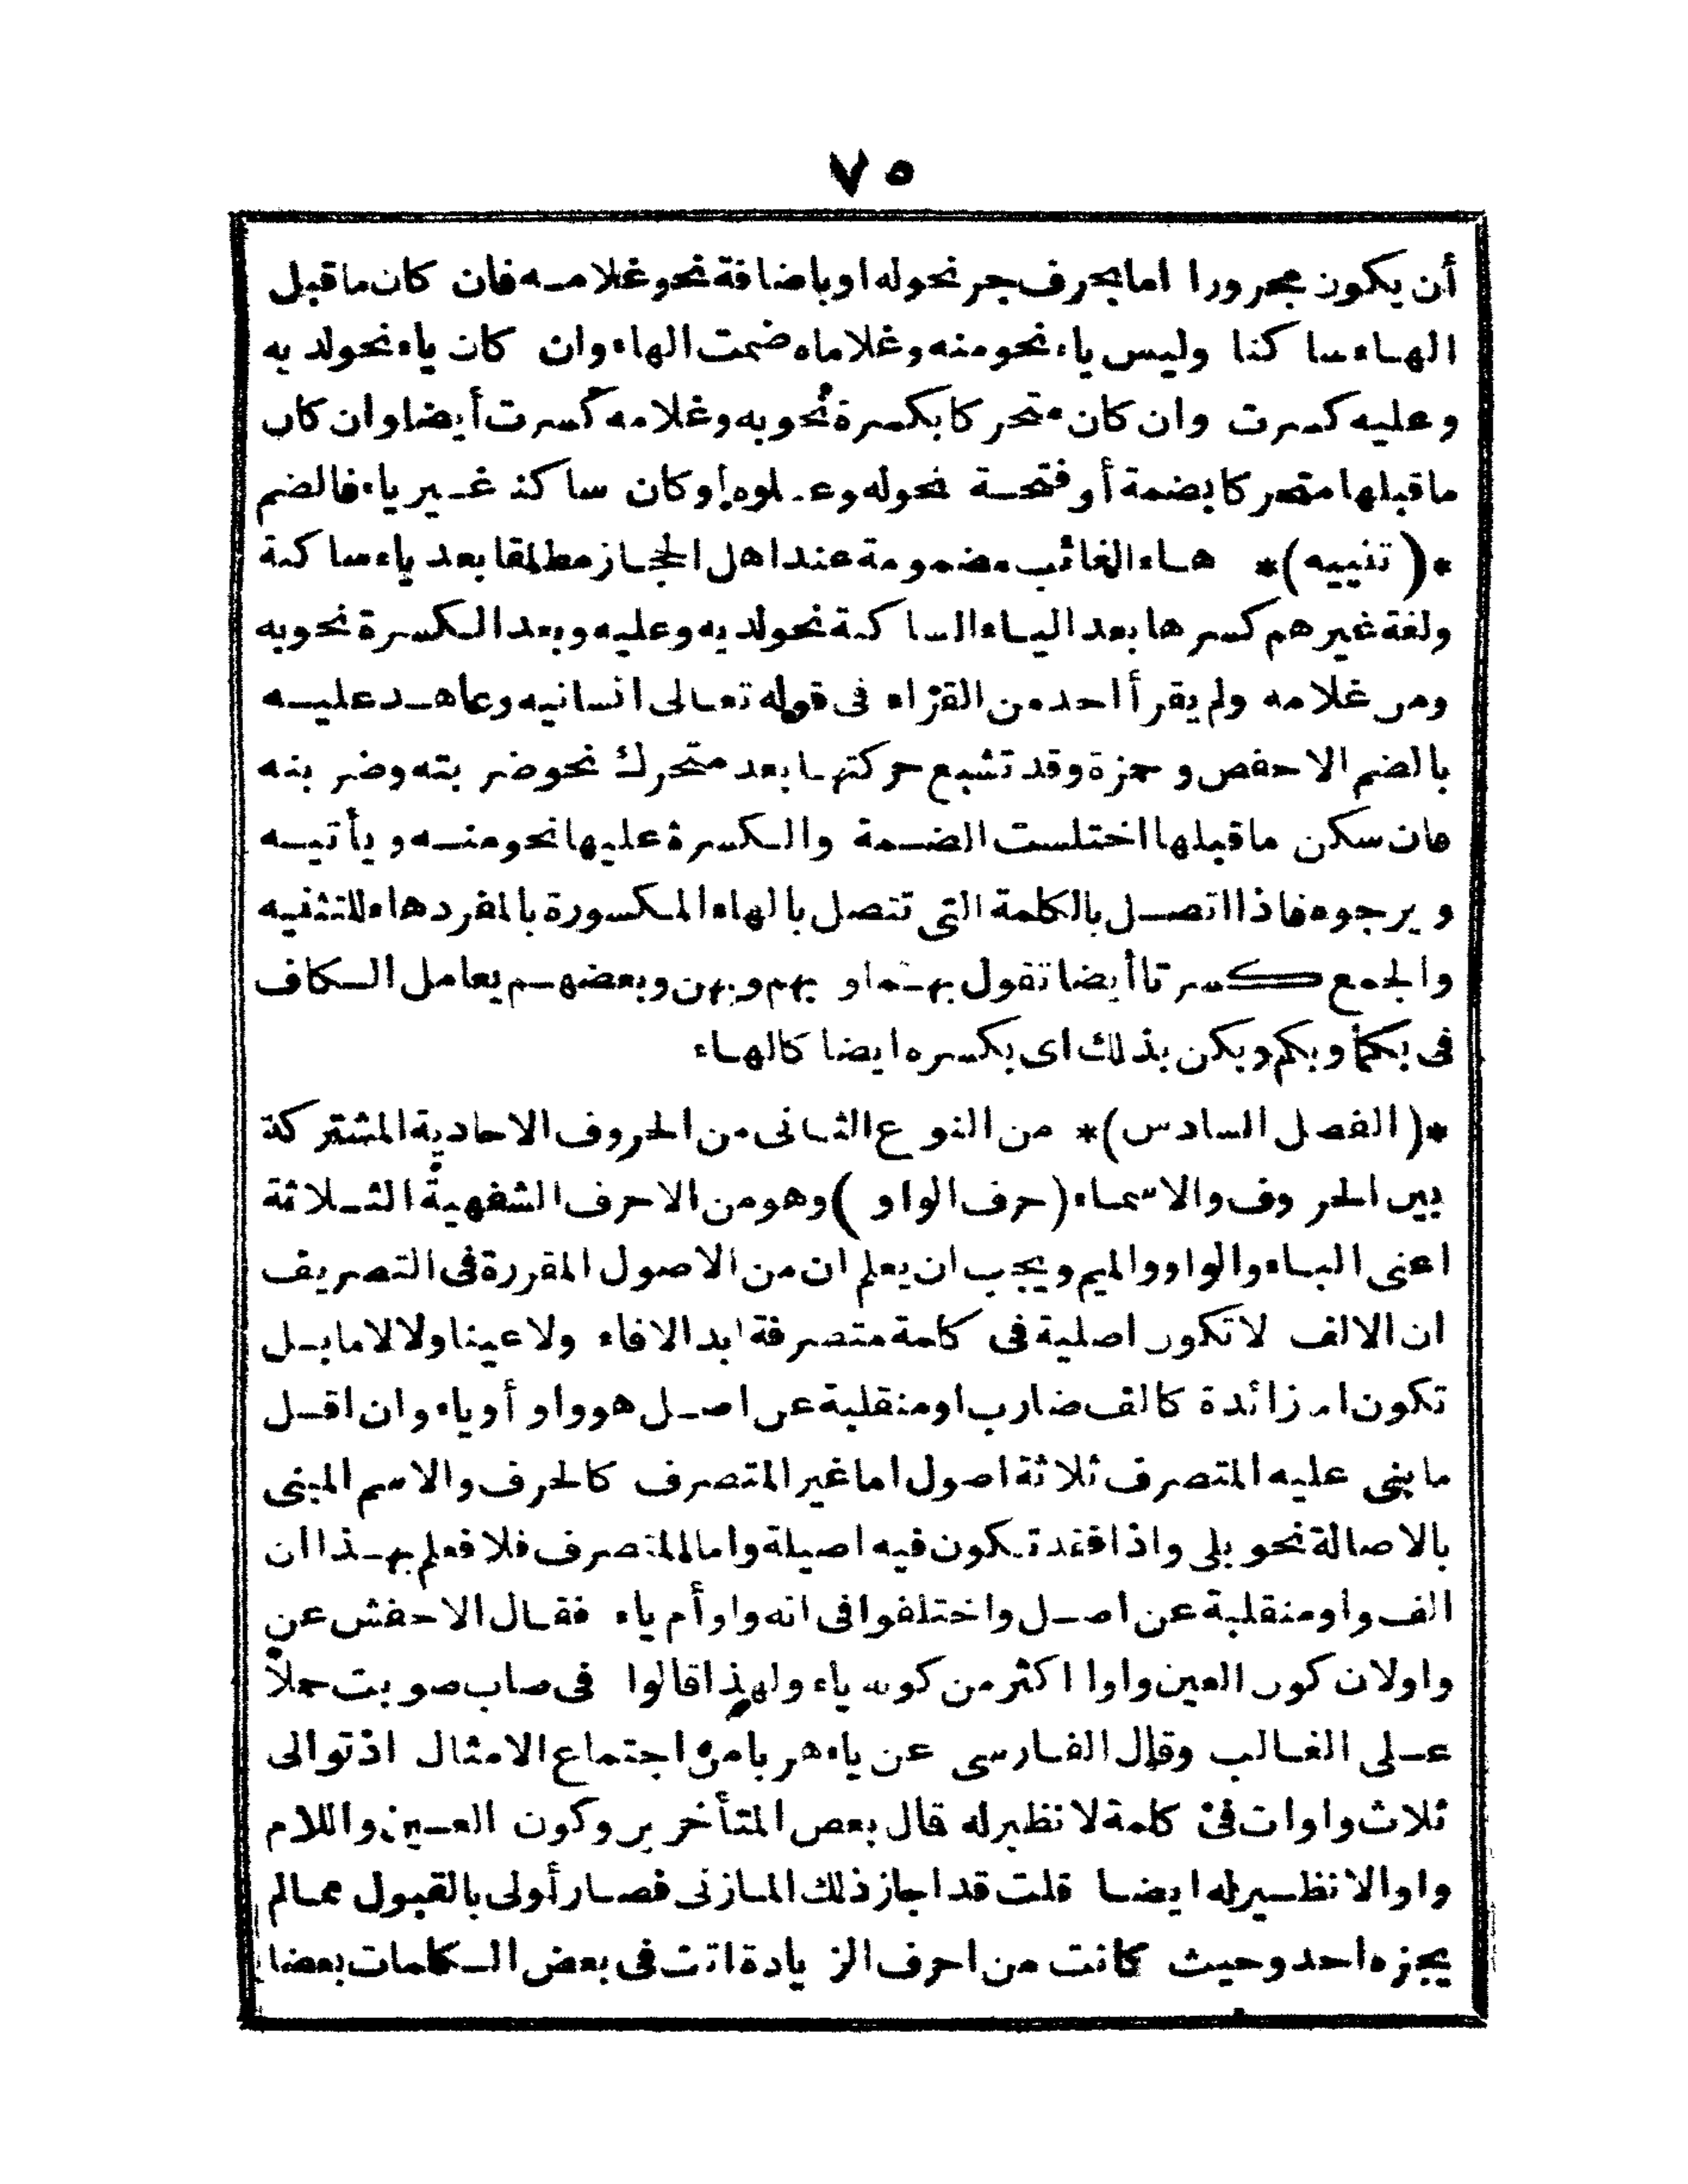 ٧٥
أن يكون مجرورا اما بحرف جر نحو له او باضافة نحو غلامه فان كان ماقبل
الهاء ساكنا وليس ياء نحو منه وغلاماه ضمت الهاء وان كان ياء نحو لديه
وعليه كسرت وان كان متحركا بكسرة نحو به وغلامه كسرت أيضا وان كان
ماقبلها متحركا بضمة أو فتحة نحو له وعلوه أو كان ساكنا غير ياء فالضم
*(تنبيه)* هاء الغائب مضمومة عند اهل الحجاز مطلقا بعد ياء ساكنة
ولغة غيرهم كسرها بعد الياء الساكنة نحو لديه وعليه وبعد الكسرة نحو به
ومن غلامه ولم يقرأ احد من القراء فى قوله تعالى انسانيه وعاهد عليه
بالضم الا حفص وحمزة وقد تشبع حركتها بعد متحرك نحو ضربته وضربنه
فان سكن ماقبلها اختلست الضمة والكسرة عليها نحو منه ويأتيه
ويرجوه فاذا اتصل بالكلمة التى تتصل بالهاء المكسورة بالمفرد هاء للتثنيه
والجمع كسرتا أيضا تقول بهما و بهم وبهن وبعضهم يعامل الكاف
فى بكما وبكم وبكن بذلك اى بكسره ايضا كالهاء
*(الفصل السادس)* من النوع الثانى من الحروف الاحادية المشتركة
بين الحروف والاسماء (حرف الواو) وهو من الاحرف الشفهية الثلاثة
اعنى الباء والواو والميم ويجب ان يعلم ان من الاصول المقررة فى التصريف
ان الالف لاتكون اصلية فى كلمة متصرفة ابدا لافاء ولا عينا ولا لاما بل
تكون اما زائدة كالف ضارب او منقلبة عن اصل هو واو أو ياء وان اقل
ما بنى عليه المتصرف ثلاثة اصول اما غير المتصرف كالحرف والاسم المبنى
بالاصالة نحو بلى واذا فقد تكون فيه اصيلة واما المتصرف فلا فعلم بهذا ان
الف واو منقلبة عن اصل واختلفوا فى انه واو أم ياء فقال الاخفش عن
واو لان كون العين واوا اكثر من كونه ياء ولهذا قالوا فى صاب صوبت حملا
على الغالب وقال الفارسى عن ياء هربا من اجتماع الامثال اذ توالى
ثلاث واوات فى كلمة لا نظير له قال بعض المتأخرين وكون العين واللام
واوا لا نظير له ايضا قلت قد اجاز ذلك المازنى فصار أولى بالقبول مما لم
يجزه احد وحيث كانت من احرف الزيادة اتت فى بعض الكلمات بعضا